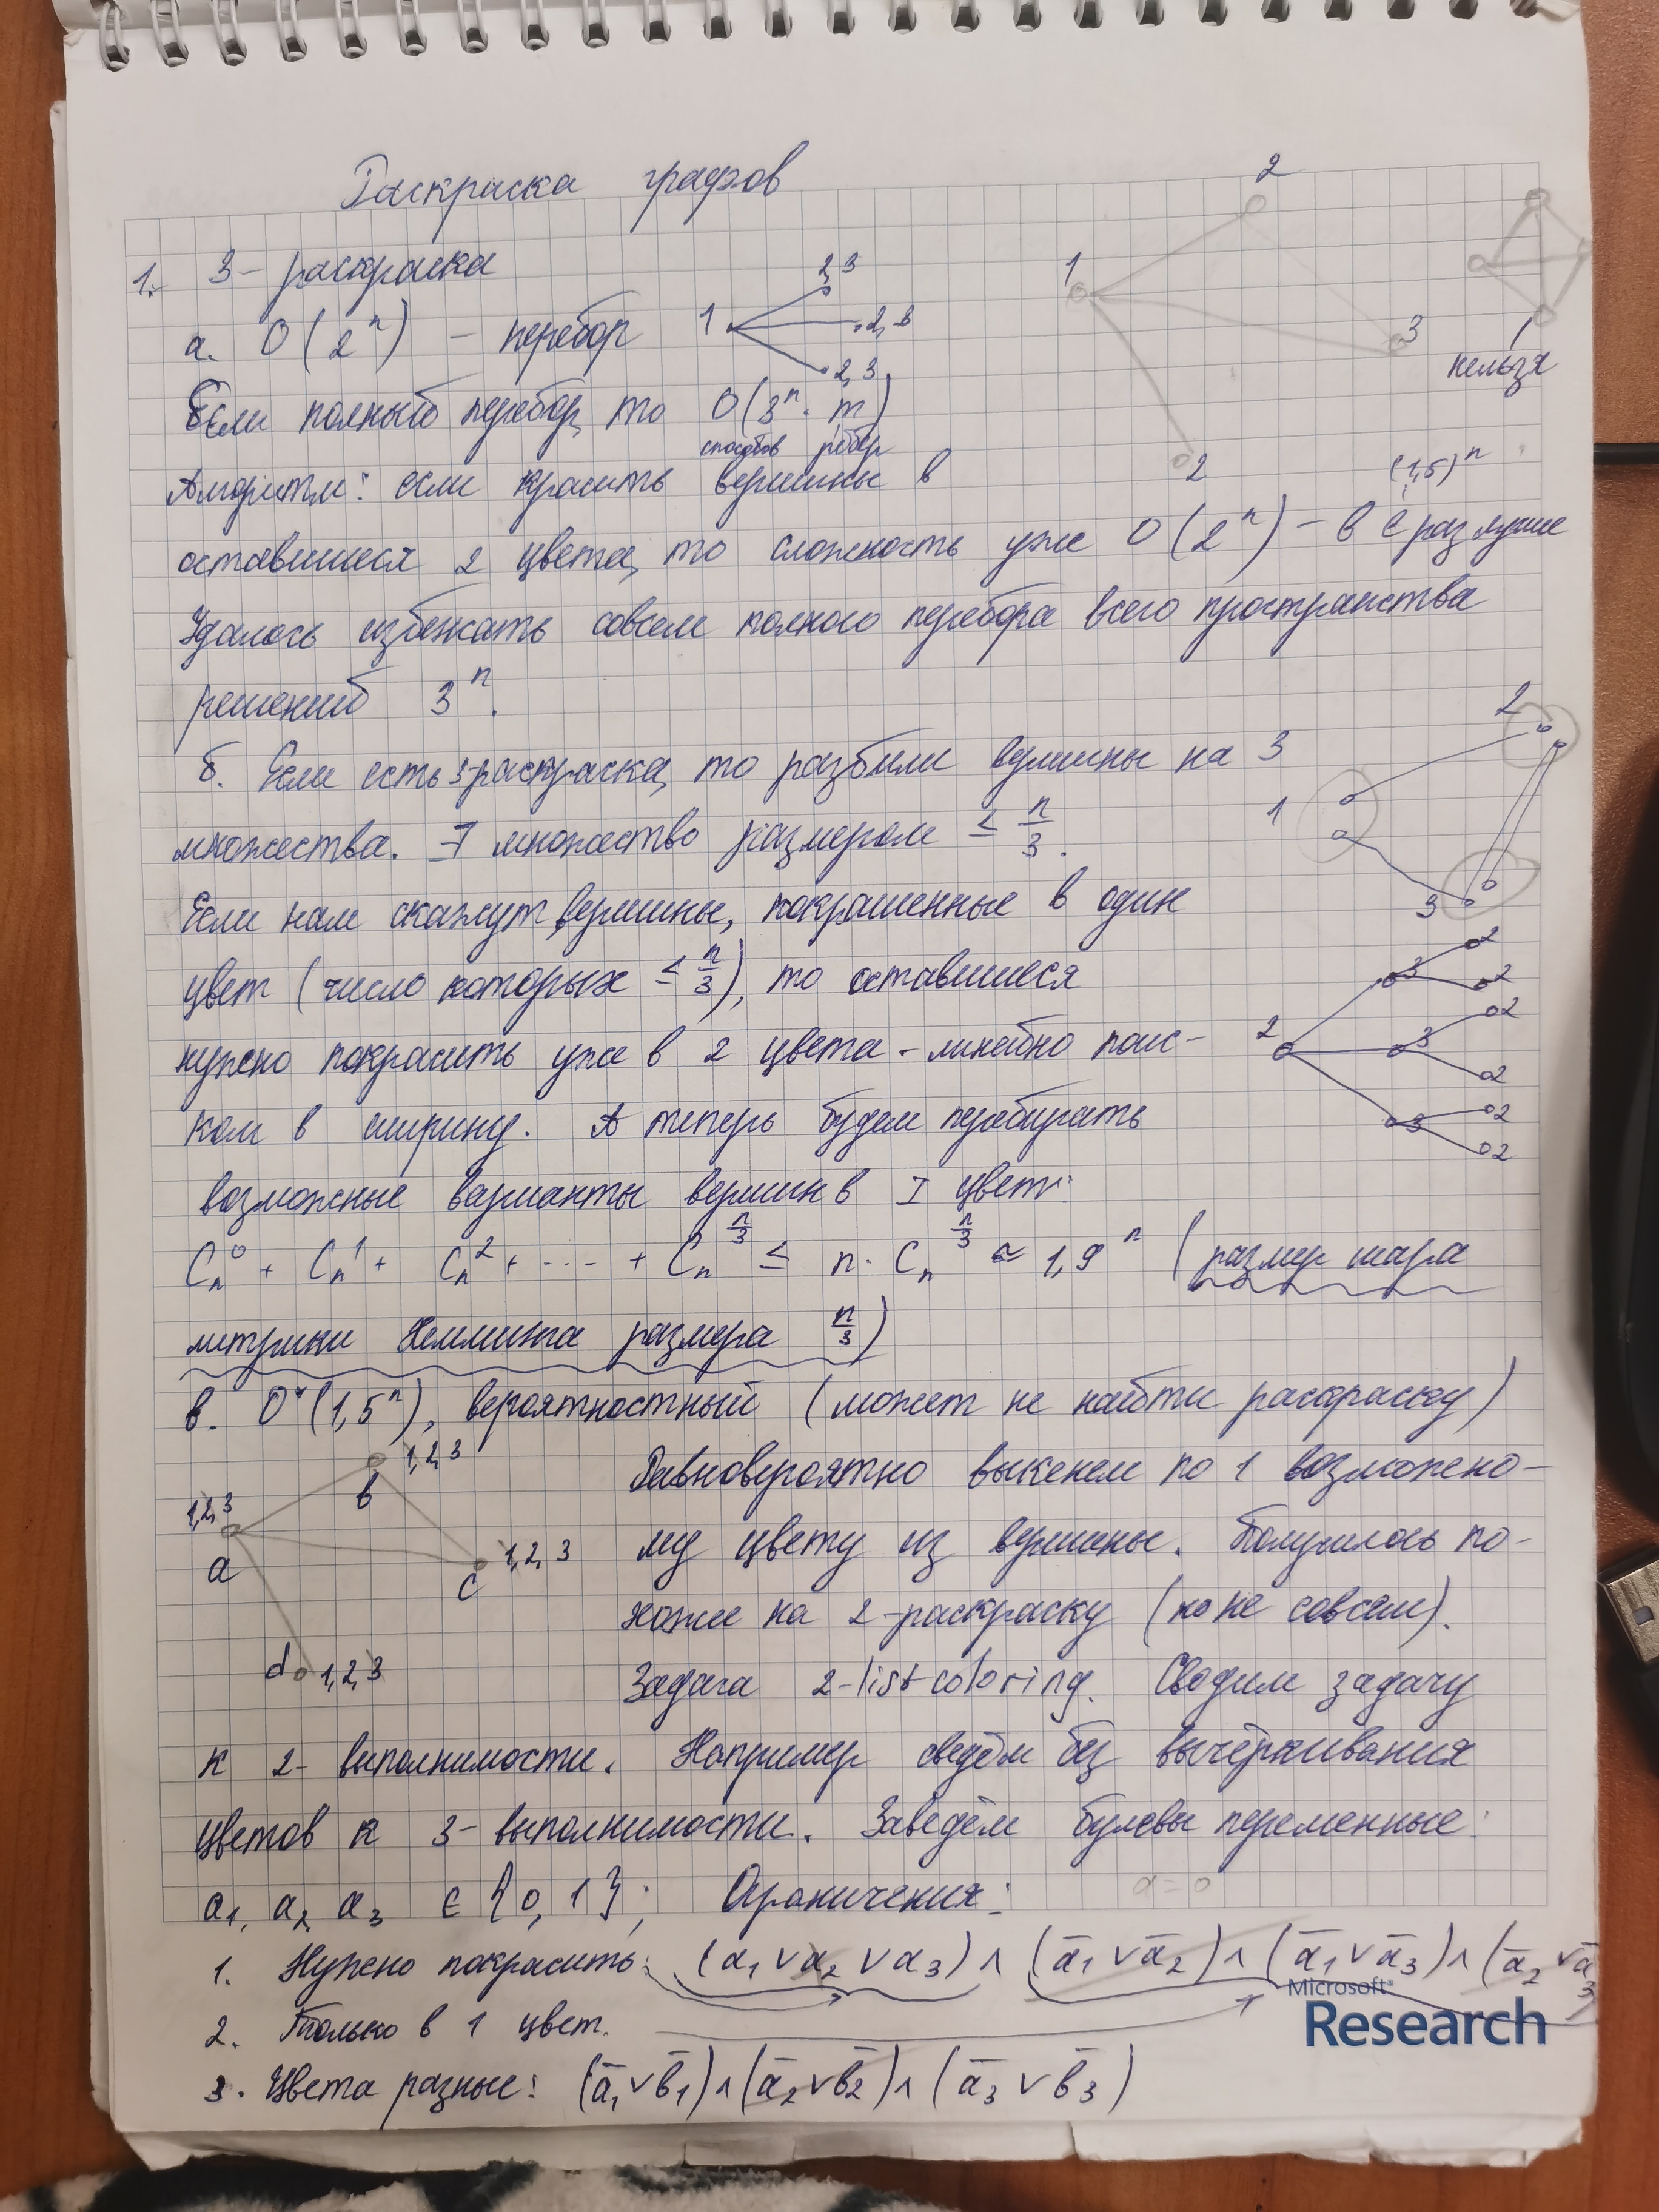 Раскраска графов
2
1. 3-раскраска
2,3
1
a. O(2ⁿ) - перебор
1
2,3
3
нельзя
2,3
Если полный перебор, то O(3ⁿ · m)
способов рёбер
2
(1,5)ⁿ
Алгоритм: если красить вершины в
оставшиеся 2 цвета, то сложность уже O(2ⁿ) - в е раз лучше
Удалось избежать совсем полного перебора всего пространства
решений 3ⁿ.
2
б. Если есть 3 раскраска, то разбили вершины на 3
1
множества. ∃ множество размером ≤ n/3.
Если нам скажут вершины, покрашенные в один
3
цвет (число которых ≤ n/3), то оставшиеся
3 2
2
2
нужно покрасить уже в 2 цвета - линейно поис-
2 3
2
ком в ширину. А теперь будем перебирать
3 2
2
возможные варианты вершин в I цвет:
Cₙ⁰ + Cₙ¹ + Cₙ² + ··· + Cₙ^(n/3) ≤ n · Cₙ^(n/3) ≈ 1,9ⁿ (размер шара
метрики Хемминга размера n/3)
в. O*(1,5ⁿ), вероятностный (может не найти раскраску)
1,2,3
b
1,2,3
a
1,2,3
c
d 1,2,3
Равновероятно выкенем по 1 возможно-
му цвету из вершины. Получилось по-
хоже на 2-раскраску (но не совсем).
Задача 2-list-coloring. Сводим задачу
к 2-выполнимости. Например сведём без вычёркивания
цветов к 3-выполнимости. Заведём булевы переменные:
a₁, a₂ a₃ ∈ {0, 1}; Ограничения:
a = 0
1. Нужно покрасить: (a₁ ∨ a₂ ∨ a₃) ∧ (ā₁ ∨ ā₂) ∧ (ā₁ ∨ ā₃) ∧ (ā₂ ∨ ā₃
2. Только в 1 цвет.
3. Цвета разные: (ā₁ ∨ b̄₁) ∧ (ā₂ ∨ b̄₂) ∧ (ā₃ ∨ b̄₃)
Microsoft®
Research